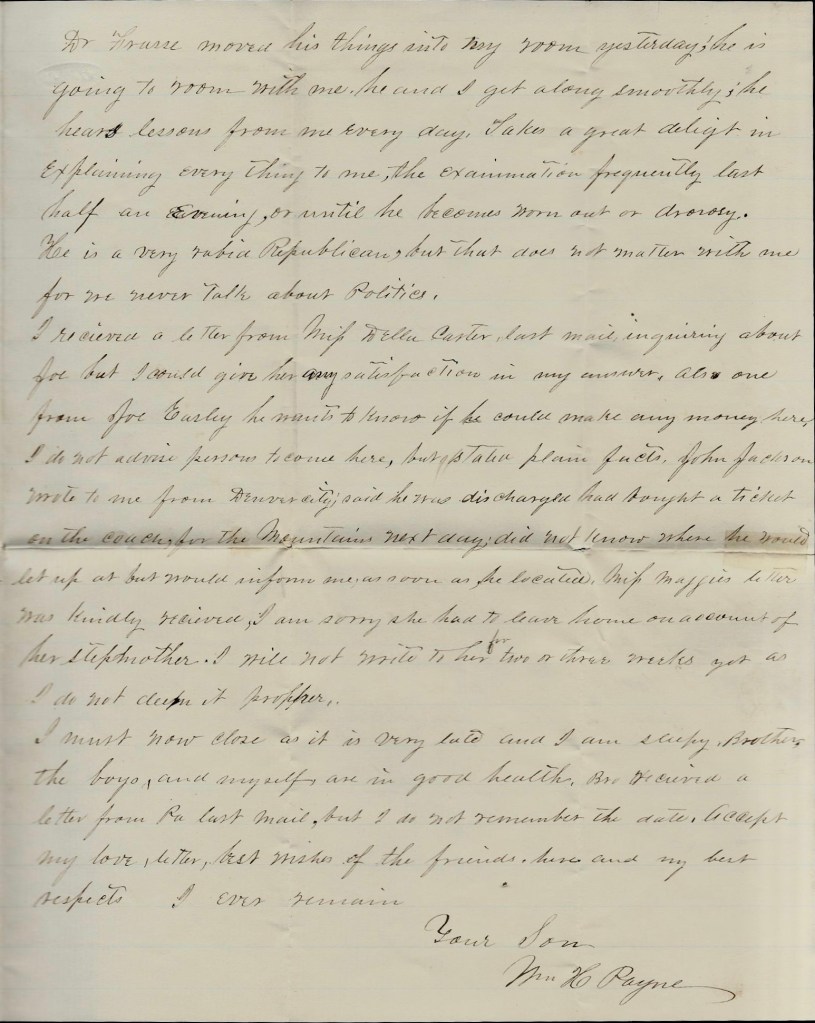 Dr Frasse moved his things into my room yesterday; he is
going to room with me. he and I get along smoothly; he
hears lessons from me every day. Takes a great deligt in
Explaining every thing to me, the examination frequently last
half an Evening, or until he becomes worn out or drowsy.
He is a very rabid Republican, but that does not matter with me
for we never talk about Politics.
I recieved a letter from Miss Della Carter, last mail, inquiring about
Joe but I could give her any satisfaction in my answer. Also one
from Joe Easley he wants to know if he could make any money here,
I do not advise persons to come here, but stated plain facts. John Jackson
wrote to me from Denver city; said he was discharged had bought a ticket
on the coach, for the Mountains next day; did not know where he would
let up at but would inform me, as soon as he located. Miss Maggies letter
was kindly recieved, I am sorry she had to leave home on account of
her stepmother. I will not write to her for two or three weeks yet as
I do not deem it propper.
I must now close as it is very late and I am sleepy. Brother,
the boys, and myself, are in good health. Bro Recieved a
letter from Pa last mail, but I do not remember the date. Accept
my love, letter, best wishes of the friends. here and my best
respects I ever remain
Your Son
Wm H Payne